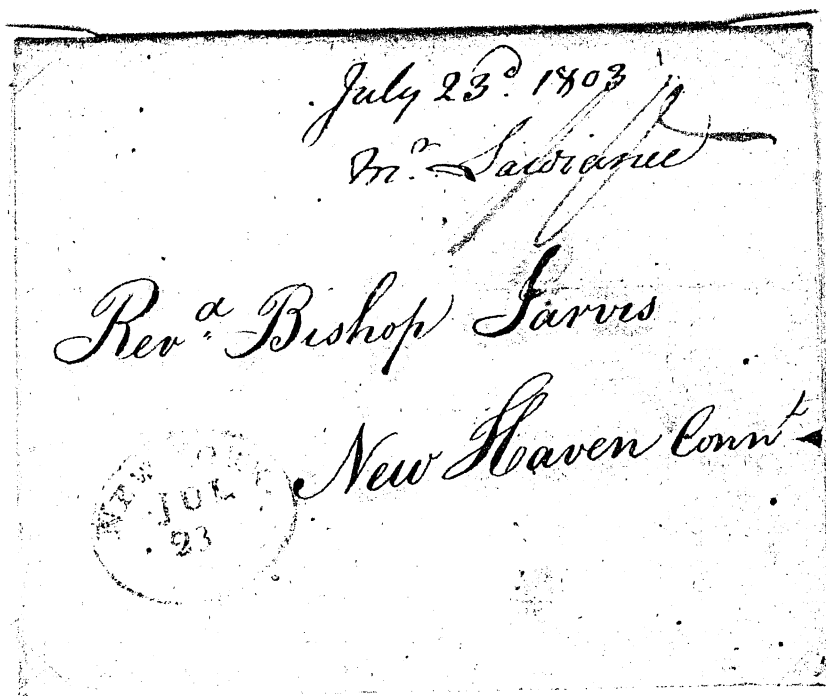 July 23ᵈ. 1803
Mʳ. Lawrance
Revᵈ. Bishop Jarvis
New Haven Connᵗ
NEW YORK
JUL
23